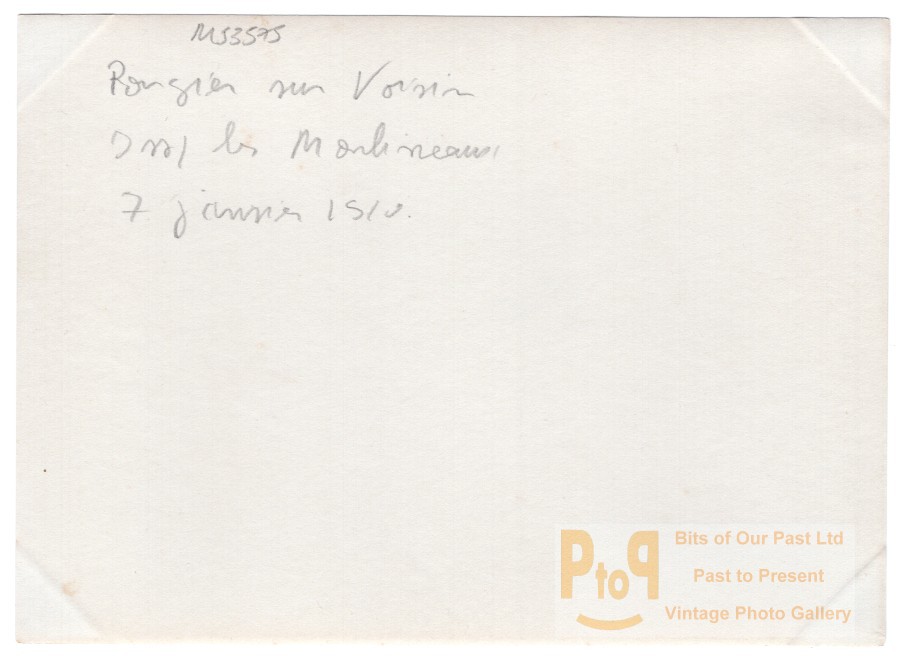 MS3575
Rougier sur Voisin
Issy les Moulineaux
7 janvier 1910.
PtoP
Bits of Our Past Ltd
Past to Present
Vintage Photo Gallery